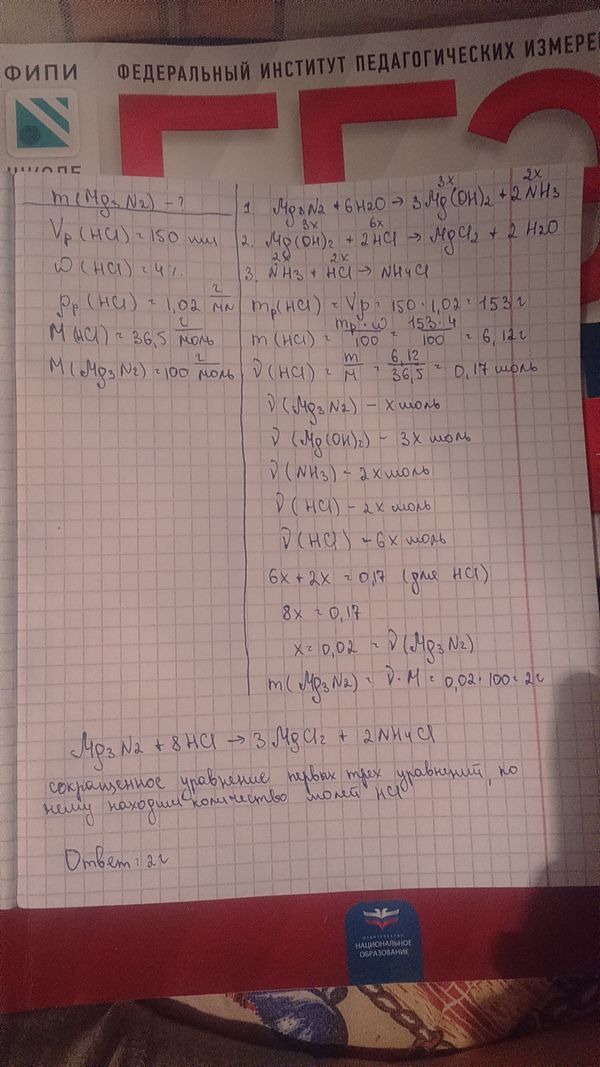 ФИПИ
ФЕДЕРАЛЬНЫЙ ИНСТИТУТ ПЕДАГОГИЧЕСКИХ ИЗМЕРЕ
ЕГЭ
ШКОЛЕ
m(Mg3N2) - ?
Vp(HCl) = 150 мл
ω(HCl) = 4%
ρp(HCl) = 1,02 г/мл
M(HCl) = 36,5 г/моль
M(Mg3N2) = 100 г/моль
3x 2x
1. Mg3N2 + 6H2O → 3Mg(OH)2 + 2NH3
3x 6x
2. Mg(OH)2 + 2HCl → MgCl2 + 2H2O
2x 2x
3. NH3 + HCl → NH4Cl
mp(HCl) = Vρ = 150 · 1,02 = 153 г
m(HCl) = mp·ω/100 = 153·4/100 = 6,12 г
ν(HCl) = m/M = 6,12/36,5 = 0,17 моль
ν(Mg3N2) - x моль
ν(Mg(OH)2) - 3x моль
ν(NH3) - 2x моль
ν(HCl) - 2x моль
ν(HCl) - 6x моль
6x + 2x = 0,17 (для HCl)
8x = 0,17
x = 0,02 = ν(Mg3N2)
m(Mg3N2) = ν·M = 0,02 · 100 = 2 г
Mg3N2 + 8HCl → 3MgCl2 + 2NH4Cl
сокращенное уравнение первых трех уравнений, по
нему находим количество молей HCl
Ответ: 2 г
ИЗДАТЕЛЬСТВО
НАЦИОНАЛЬНОЕ
ОБРАЗОВАНИЕ